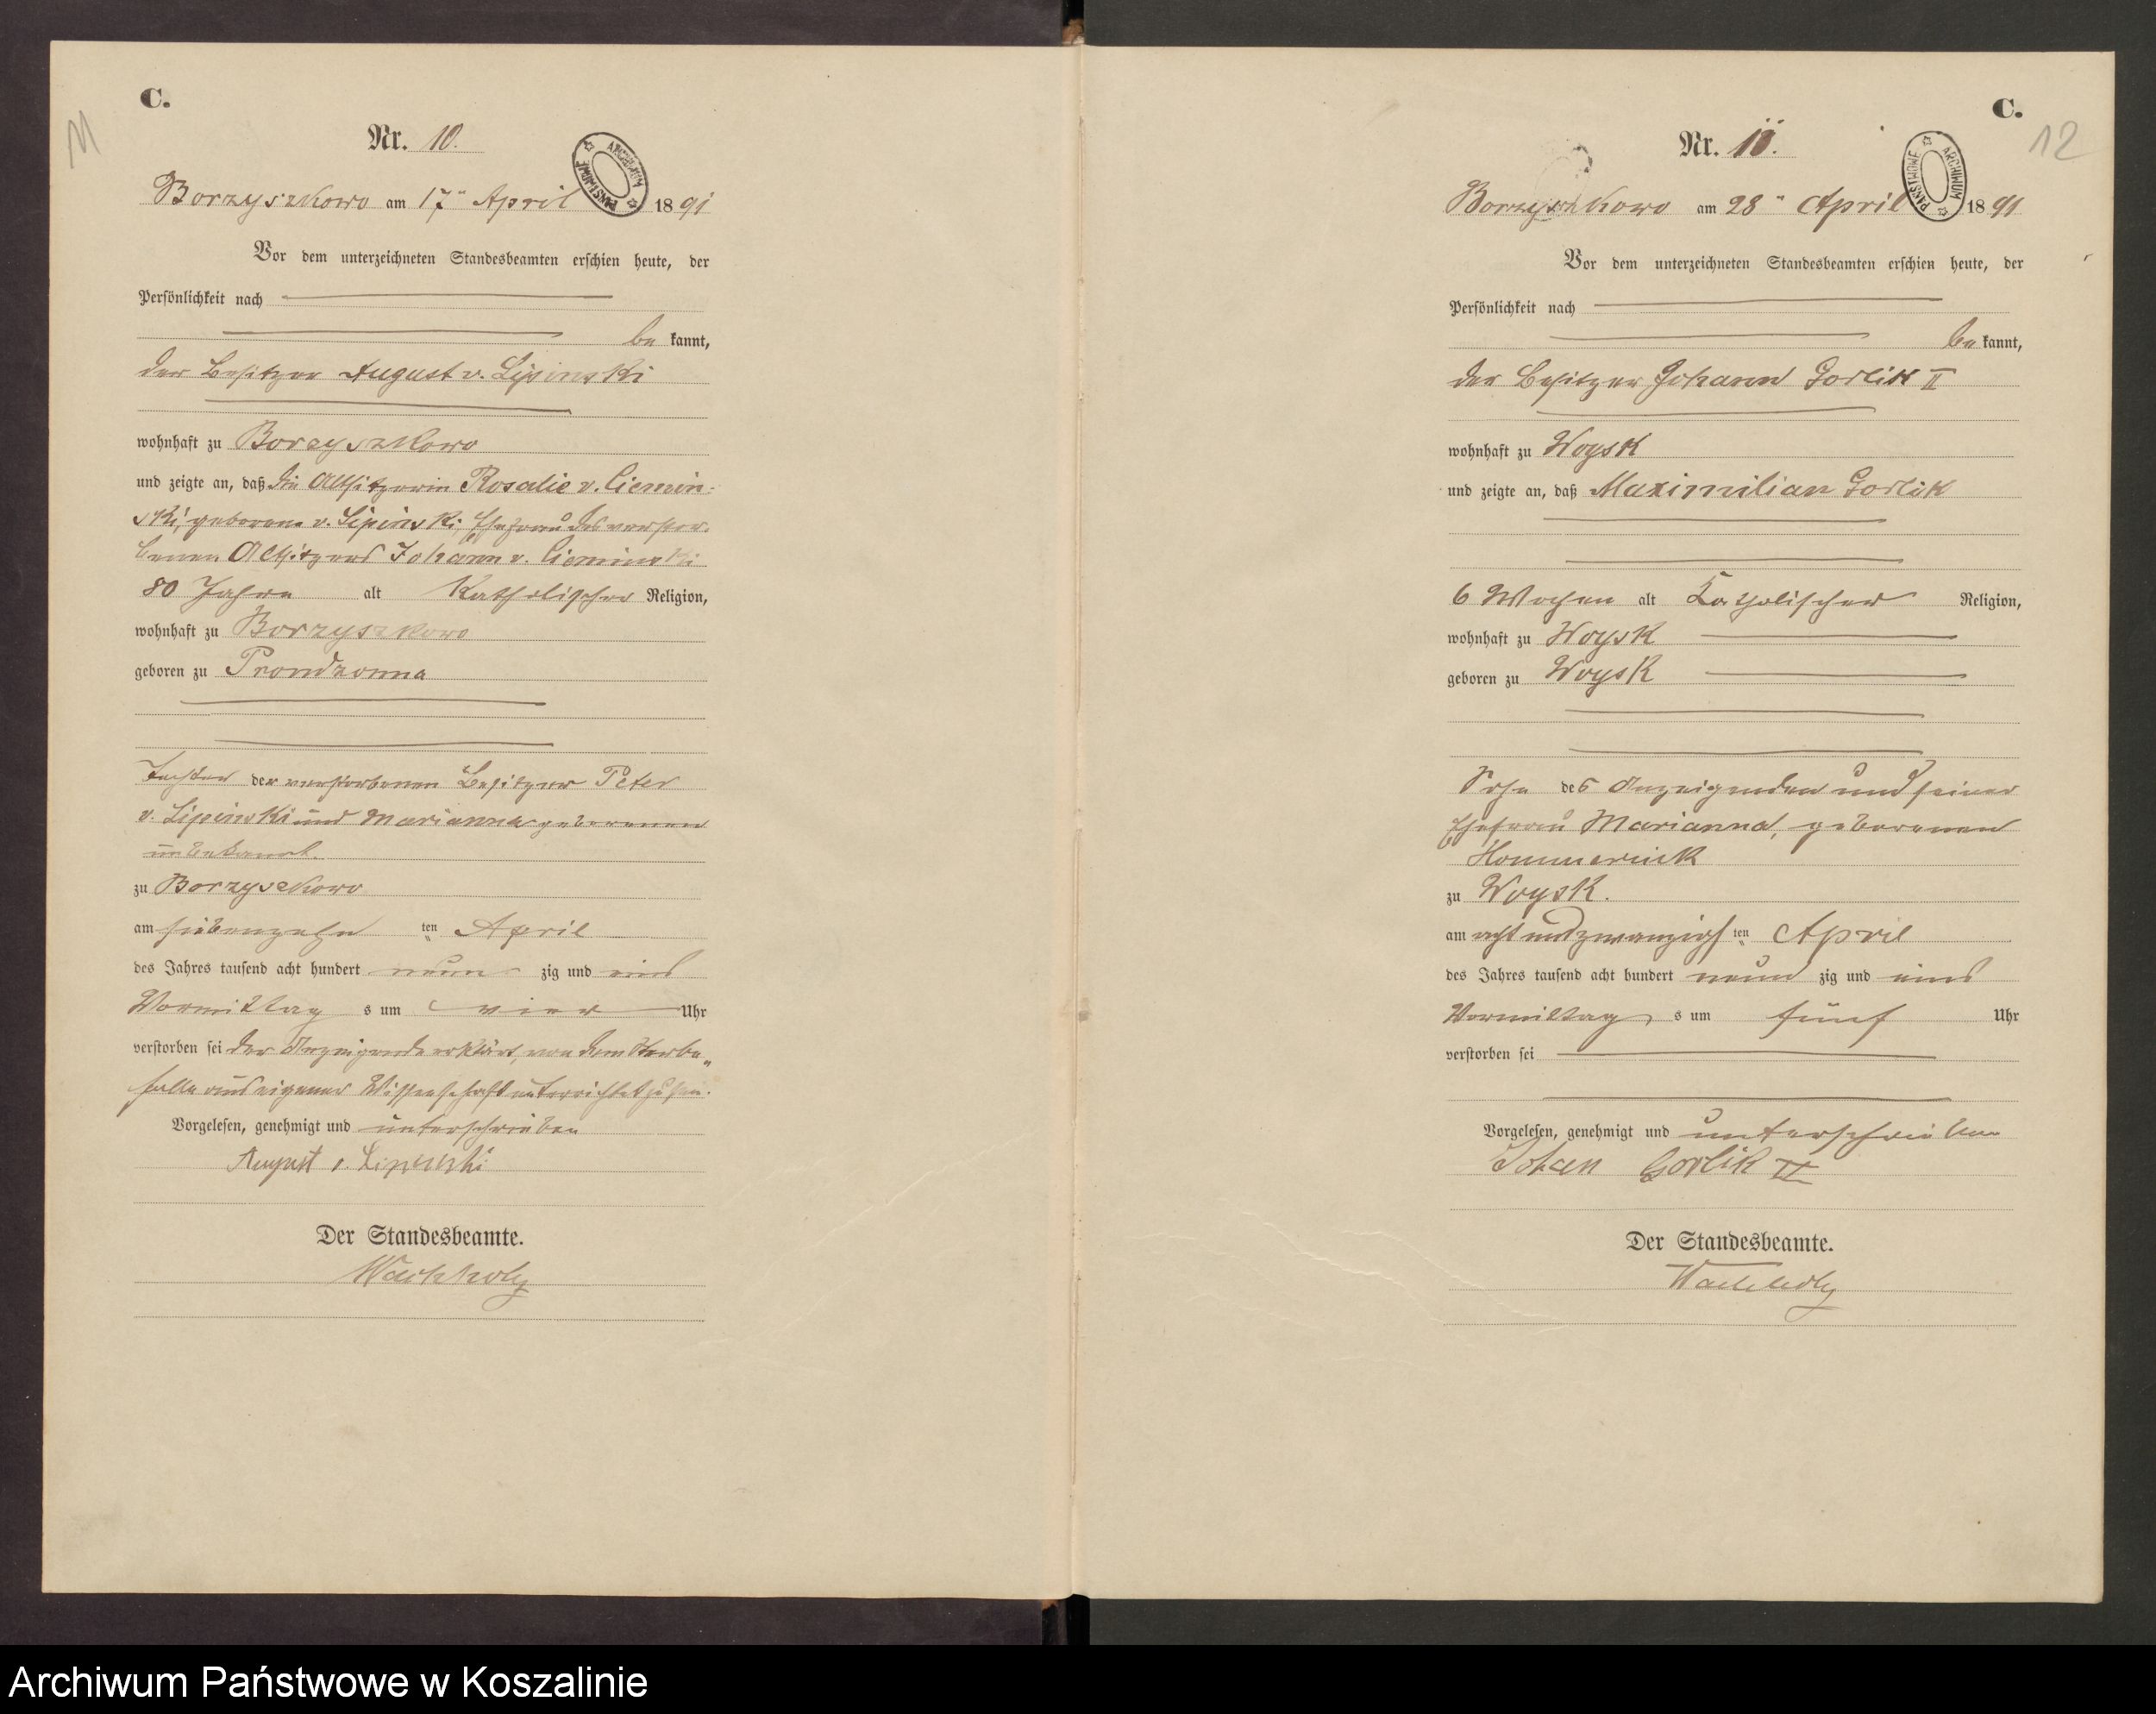 C.
11
Nr. 10.
ARCHIWUM PAŃSTWOWE
Borzyszkowo am 17ten April 1891
Vor dem unterzeichneten Standesbeamten erschien heute, der
Persönlichkeit nach
be kannt,
der Besitzer August v. Lipinski
wohnhaft zu Borzyszkowo
und zeigte an, daß die Altsitzerin Rosalie v. Ciemin-
ski, geborene v. Lipinski, Ehefrau des verstor-
benen Altsitzers Johann v. Cieminski
80 Jahre alt Katholischer Religion,
wohnhaft zu Borzyszkowo
geboren zu Prondzonna
Tochter der verstorbenen Besitzer Peter
v. Lipinski und Marianna geborenen
unbekannt.
zu Borzyszkowo
am siebenzehn ten April
des Jahres tausend acht hundert neun zig und eins
Vormittag s um vier Uhr
verstorben sei der Anzeigende erklärt, von dem Sterbe-
falle aus eigener Wissenschaft unterrichtet zu sein.
Vorgelesen, genehmigt und unterschrieben
August v. Lipinski
Der Standesbeamte.
Wachholz
C.
12
Nr. 11.
ARCHIWUM PAŃSTWOWE
Borzyszkowo am 28ten April 1891
Vor dem unterzeichneten Standesbeamten erschien heute, der
Persönlichkeit nach
be kannt,
der Besitzer Johann Gorlik II
wohnhaft zu Woysk
und zeigte an, daß Maximilian Gorlik
6 Wochen alt Katholischer Religion,
wohnhaft zu Woysk
geboren zu Woysk
Sohn des Anzeigenden und seiner
Ehefrau Marianna, geborenen
zu Woysk.
am acht und zwanzigs ten April
des Jahres tausend acht hundert neun zig und eins
Vormittag s um fünf Uhr
verstorben sei
Vorgelesen, genehmigt und unterschrieben
Johan Gorlik II
Der Standesbeamte.
Wachholz
Archiwum Państwowe w Koszalinie